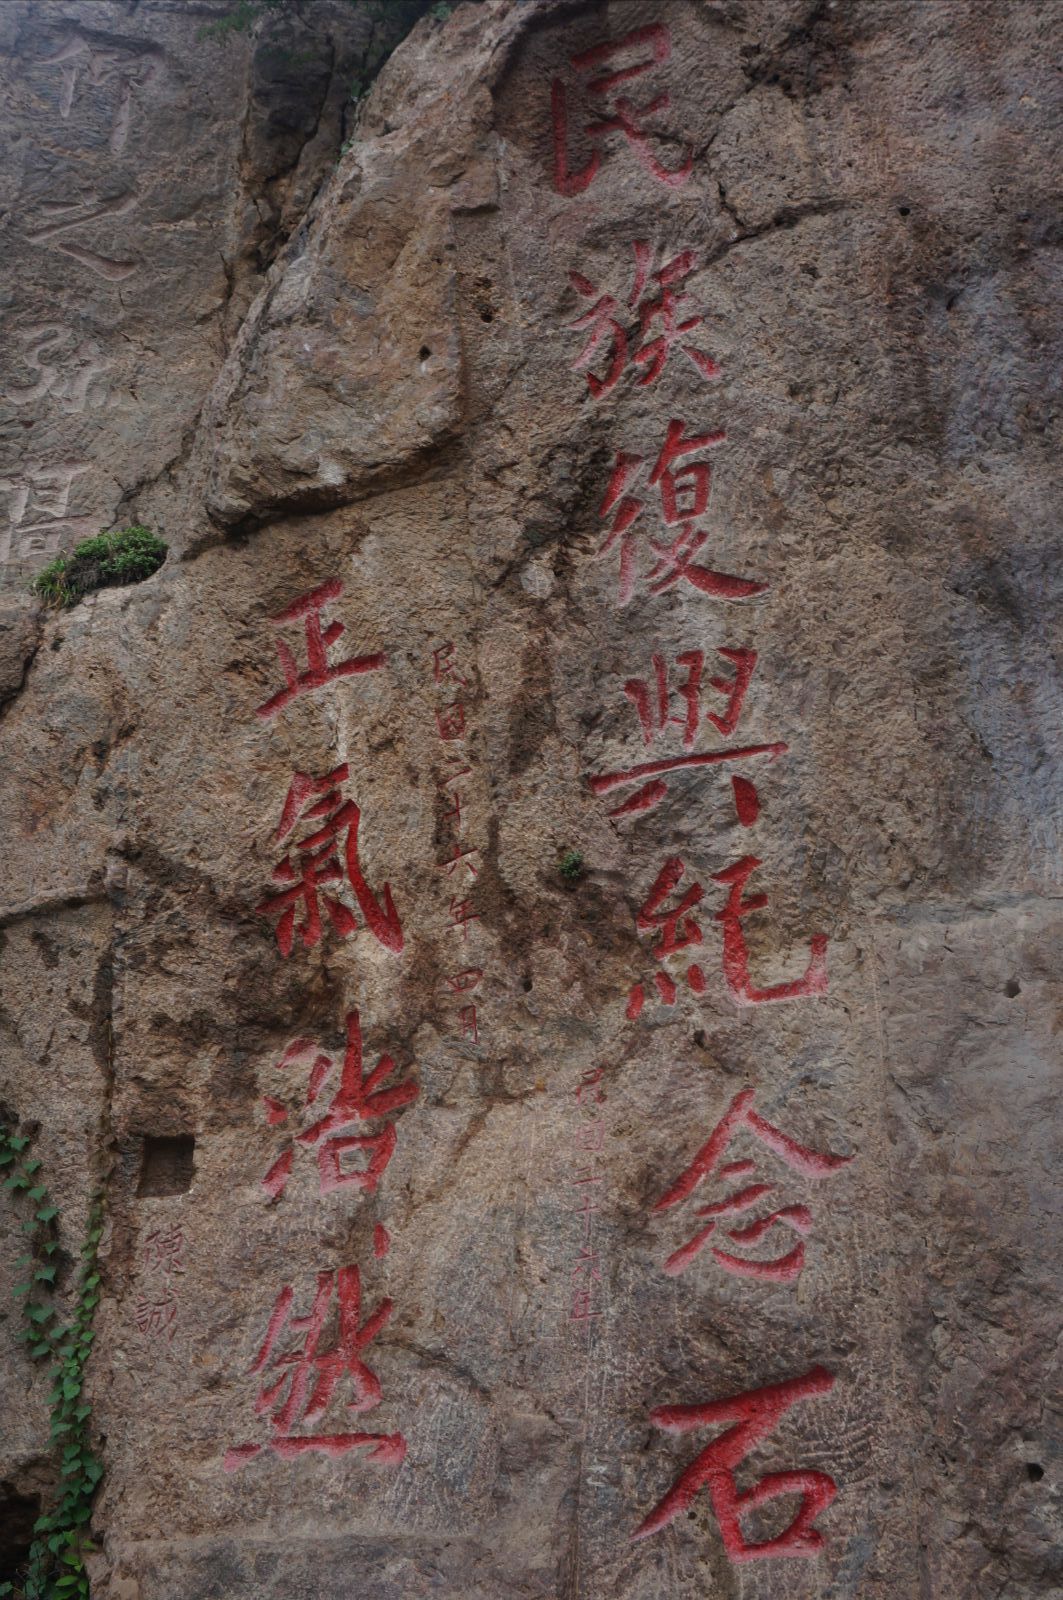 民族復興紀念石
民国二十六年
民国二十六年四月
正氣浩然
陳誠
仰之弥高